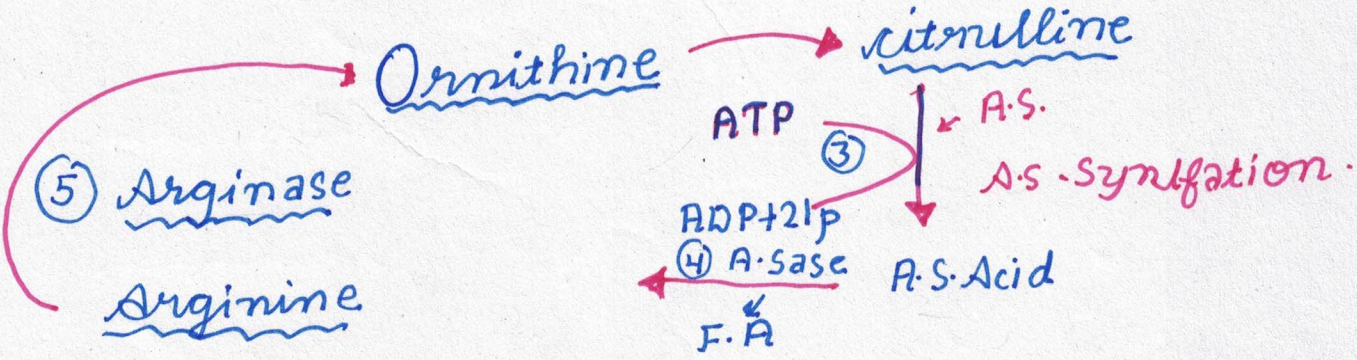 Ornithine
citrulline
ATP
A.S.
③
A.S. Syntfation.
⑤ Arginase
ADP+2Ip
④ A.Sase
A.S.Acid
Arginine
F.A